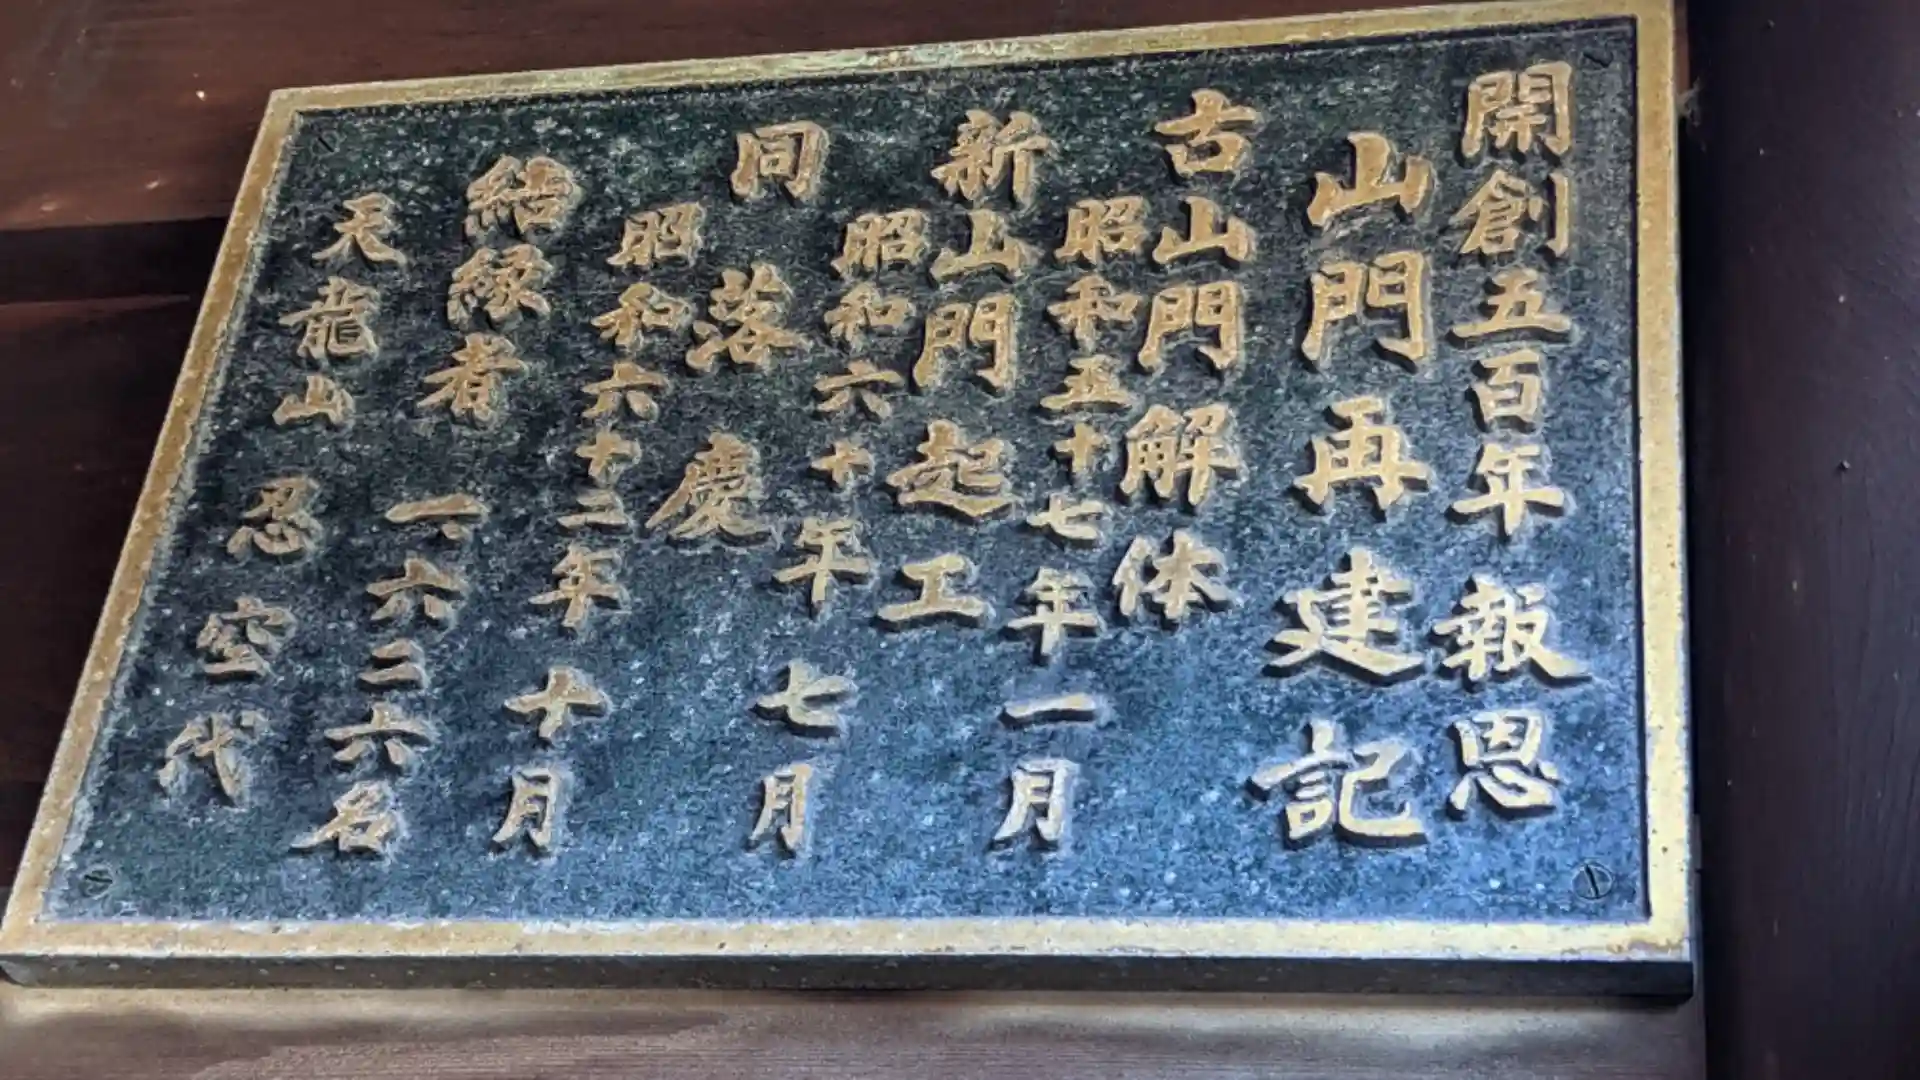 開創五百年報恩
山門再建記
古山門解体
昭和五十七年一月
新山門起工
昭和六十年七月
同落慶
昭和六十二年十月
結縁者
一、六二六名
天龍山 忍空代